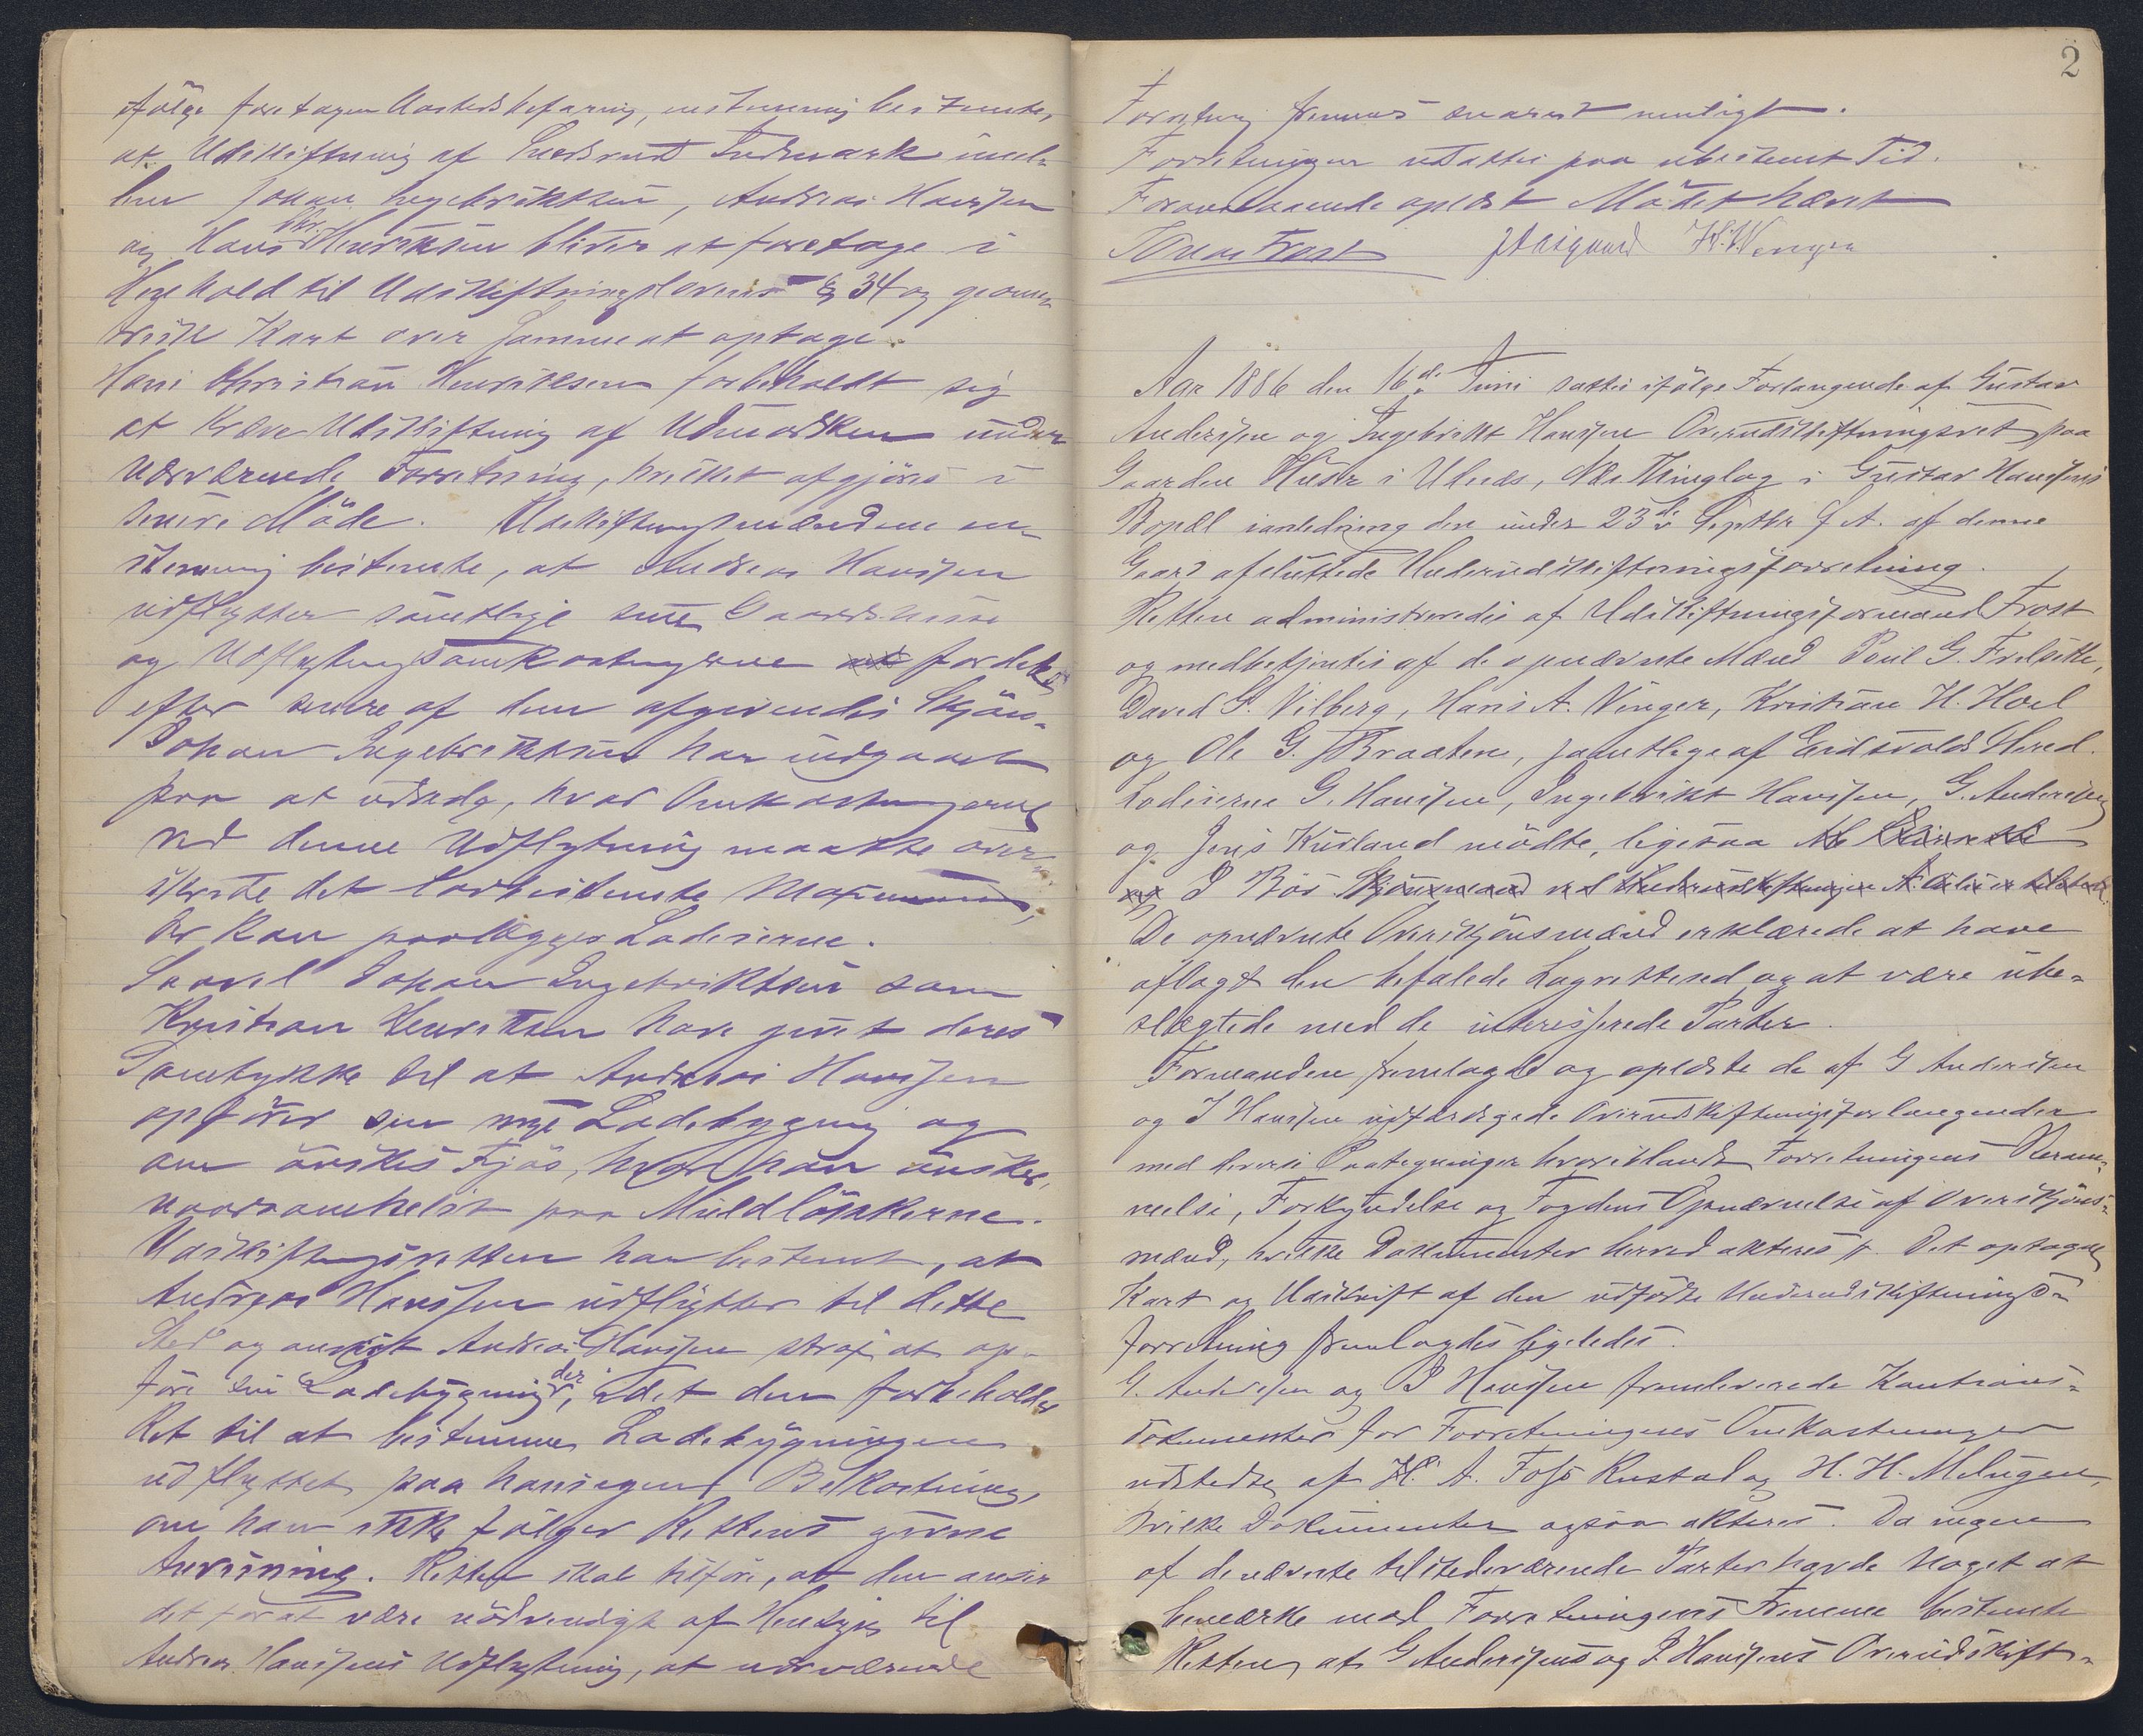 ifölge foretagen Aastedsbefaring, enstemmig bestemte,
at Udskiftning af Indmark imel-
lem Johan Ingebriktsen, Andreas Hanssen
og Hans Chr. Henriksen bliver at foretage i
Henhold til Udskiftningslovens § 34 og geome-
trisk Kart over samme at optage.
Hans Christian Henriksen forbeholdt sig
at kræve Udskiftning af Udmarken under
nærværende Forretning, hvilket afgjöres i
senere Möde. Udskiftningsmændene en-
stemmig bestemte, at Andreas Hanssen
udflytter samtlige sine Gaardshuse
og Udflytningsomkostningerne fordeles
efter senere af dem afgivendes Skjön.
Johan Ingebriktsen har indgaaet
paa at udrede, hvad Omkostningerne
ved denne Udflytning maatte over-
skride det lovbestemte Maximum,
der kan paalægges Lodeierne.
Saavel Johan Ingebriktsen som
Kristian Henriksen have givet deres
Samtykke til at Andreas Hanssen
opförer sin nye Ladebygning og
om önskes Fjös, hvor han önsker,
naarsomhelst paa Muldlökkerne.
Udskiftningsretten har bestemt, at
Andreas Hanssen udflytter til dette
Sted og Andreas Hanssen strax at op-
före sin Ladebygning der, idet den forbeholder
Ret til at bestemme Ladebygningen
udflyttet paa hans egen Bekostning,
om han ikke fölger Rettens givne
Anvisning. Retten skal tilföie, at den anser
det for at være nödvendigt af Hensyn til
Andreas Hanssens Udflytning, at nærværende
2
Forretning fremmes snarest muligt.
Forretningen udsattes paa ubestemt Tid.
Foranstaaende oplæst Mödet hævet
Frost
Aar 1886 den 16de Juni sattes ifölge Forlangende af Gustav
Andersen og Ingebrikt Hanssen Overudskiftningsret paa
Gaarden i Ulnæs, Næs Thinglag i Gustav Hanssens
Bopæl i anledning den under 23de Septbr f. A. af denne
Gaard afsluttede Underudskiftningsforretning.
Retten administreredes af Udskiftningsformand Frost
og medbetjentes af de opnævnte Mænd Poul G. Frilseth,
David S. Vilberg, Hans A. Vinger, Kristian H. Hoel
og Ole G. Braaten, samtlige af Eidsvolds Hered.
Lodeierne G. Hanssen, Ingebrikt Hanssen, G. Andersen
og Jens Kurland mödte, ligesaa
De opnævnte Overskjönsmænd erklærede at have
aflagt den befalede Lagrettesed og at være ube-
slægtede med de interesserede Parter.
Formanden fremlagde og oplæste de af G Andersen
og I Hanssen udfærdigede Overudskiftningsforlangender
med diverse Paategninger hvoriblandt Forretningens Beram-
melse, Forkyndelse og Fogdens Opnævnelse af Overskjöns-
mænd, hvilke Dokumenter herved akteres p. Det optagne
Kart og Udskrift af den udförte Underudskiftnings-
forretning fremlagdes ligeledes.
G. Andersen og I Hanssen fremleverede Kautions-
dokumenter for Forretningens Omkostninger
udstedte af H. A. Foss Rustad og H. H. Melingen,
hvilke Dokumenter ogsaa akteres. Da ingen
af de nævnte tilstedeværende Parter havde noget at
bemærke mod Forretningens Fremme bestemte
Retten, at G Andersens og I Hanssens Overudskift-